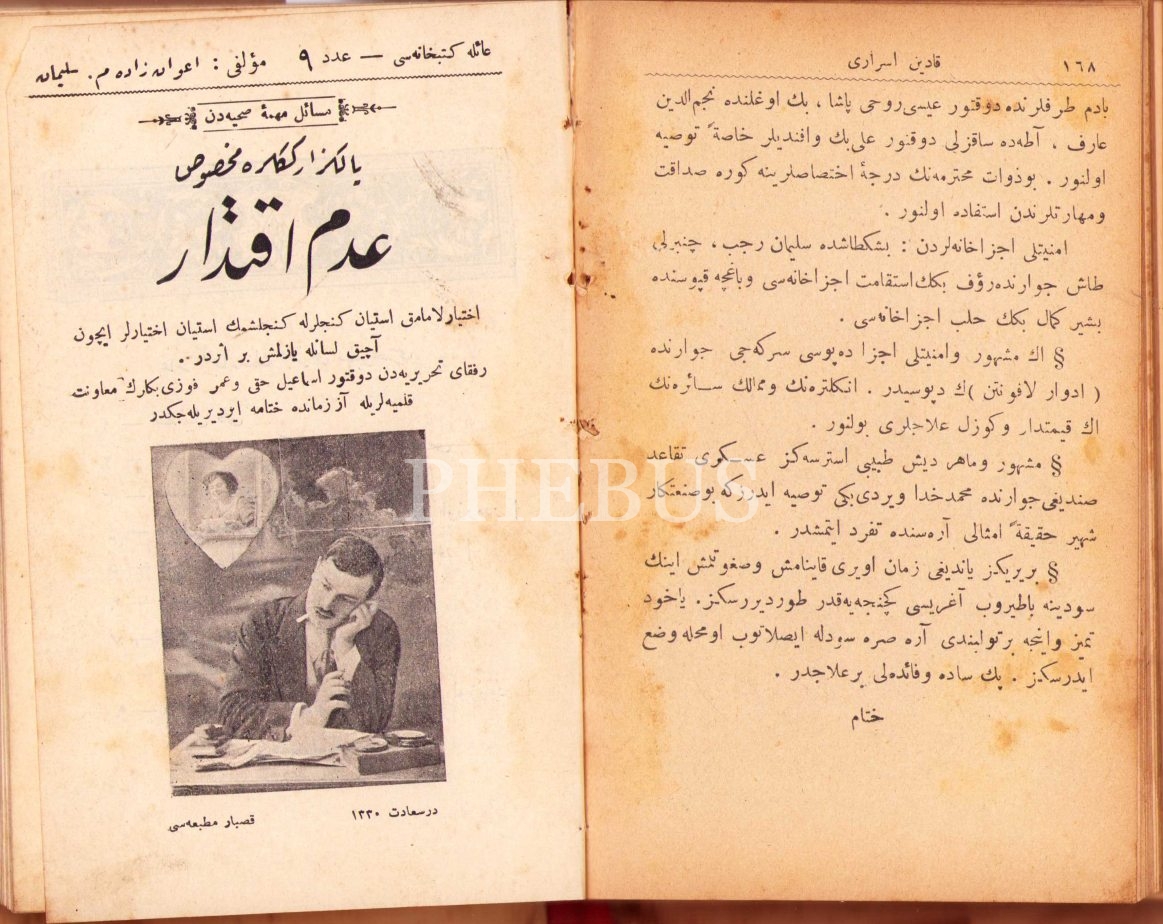 ١٦٨
قادین اسراری
بادم طرفلرنده دوقتور عیسی روحی پاشا ، بك اوغلنده نجم الدین
عارف ، آطه‌ده ساقزلی دوقتور علی بك وافندیلر خاصةً توصیه
اولنور . بوذوات محترمه‌نك درجهٔ اختصاصلرینه کوره صداقت
ومهارتلرندن استفاده اولنور .
امنیتلی اجزاخانه‌لردن : بشکطاشده سلیمان رجب ، چنبرلی
طاش جوارنده رؤف بكك استقامت اجزاخانه‌سی وباغچه قپوسنده
بشیر کمال بكك حلب اجزاخانه‌سی .
§ اك مشهور وامنیتلی اجزا ده‌پوسی سرکه‌جی جوارنده
( ادوار لافونتن )ك دپوسیدر . انکلتره‌نك وممالك سائره‌نك
اك قیمتدار وکوزل علاجلری بولنور .
§ مشهور وماهر دیش طبیبی استرسه‌کز عسکری تقاعد
صندیغی جوارنده محمد خدا ویردی بكی توصیه ایدرزکه بوصنعتکار
شهیر حقیقةً امثالی آره‌سنده تفرد ایتمشدر .
§ بریریکز یاندیغی زمان اویری قاینامش وصغوتمش اینك
سودینه باطیروب آغریسی کچنجه‌یه‌قدر طوردیررسکز. یاخود
تمیز واینجه بر تولبندی آره صره سودله ایصلاتوب اومحله وضع
ایدرسکیز . پك ساده وفائده‌لی برعلاجدر .
ختام
عائله کتبخانه‌سی — عدد ٩ مؤلفی : اعوان زاده م. سلیمان
مسائل مهمهٔ صحیه‌دن
یالکز ارککلره مخصوص
عدم اقتدار
اختیارلامامق استیان کنجلرله کنجلشمك استیان اختیارلر ایچون
آچیق لسانله یازلمش بر اثردر .
رفقای تحریریه‌دن دوقتور اسماعیل حقی وعمر فوزی بکلرك معاونت
قلمیه‌لریله آز زمانده ختامه ایردیریله‌جکدر
PHEBUS
درسعادت ١٣٣٠
قصبار مطبعه‌سی